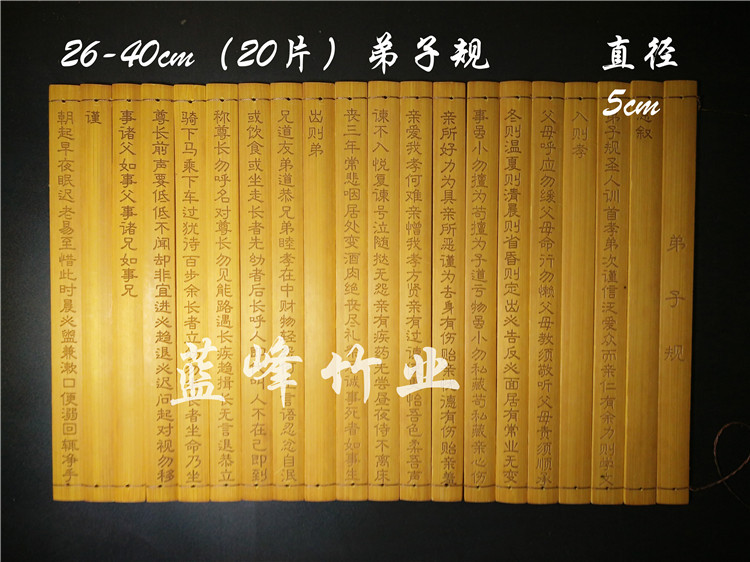 26-40cm（20片）弟子规
直径
5cm
弟子规
叙
子规圣人训首孝弟次谨信泛爱众而亲仁有余力则学文
入则孝
父母呼应勿缓父母命行勿懒父母教须敬听父母责须顺承
冬则温夏则清晨则省昏则定出必告反必面居有常业无变
事虽小勿擅为苟擅为子道亏物虽小勿私藏苟私藏亲心伤
亲所好力为具亲所恶谨为去身有伤贻亲德有伤贻亲羞
亲爱我孝何难亲憎我孝方贤亲有过怡吾色柔吾声
谏不入悦复谏号泣随挞无怨亲有疾药先尝昼夜侍不离床
丧三年常悲咽居处变酒肉绝丧尽礼诚事死者如事生
出则弟
兄道友弟道恭兄弟睦孝在中财物轻言语忍忿自泯
或饮食或坐走长者先幼者后长呼人叫人不在己即到
称尊长勿呼名对尊长勿见能路遇长疾趋揖长无言退恭立
骑下马乘下车过犹待百步余长者立长者坐命乃坐
尊长前声要低低不闻却非宜进必趋退必迟问起对视勿移
事诸父如事父事诸兄如事兄
谨
朝起早夜眠迟老易至惜此时晨必盥兼漱口便溺回辄净手
蓝峰竹业